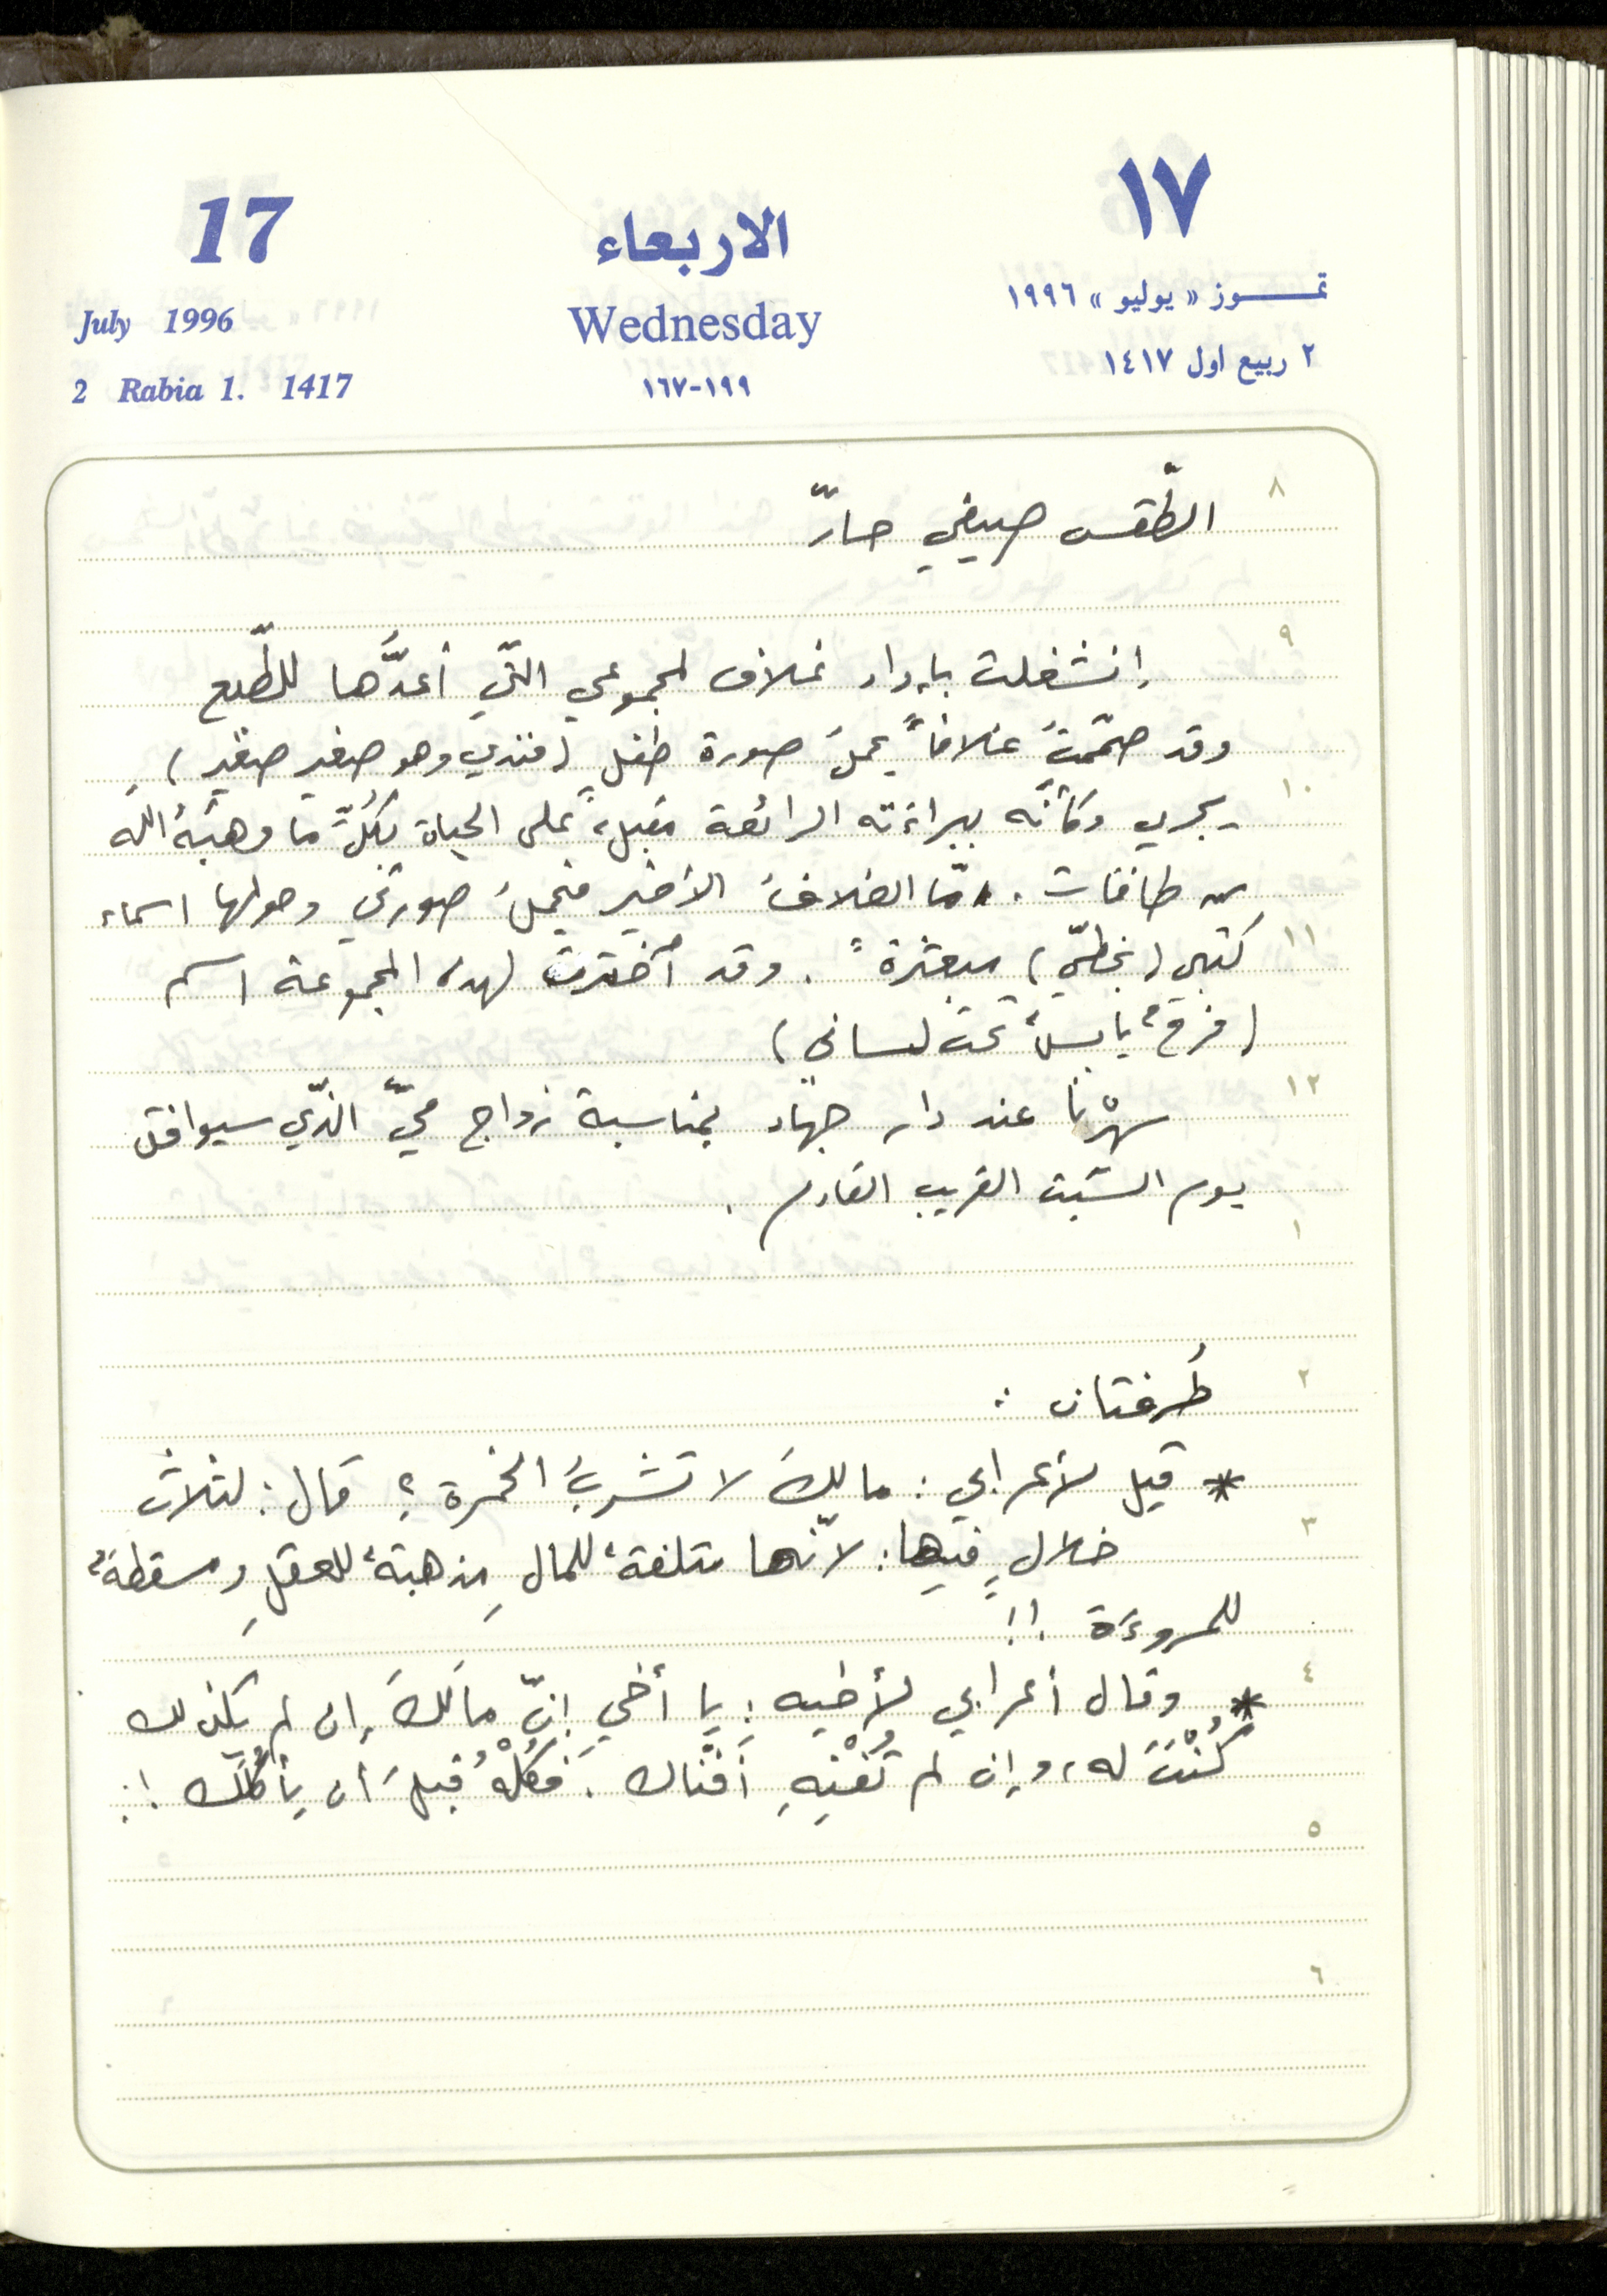 ١٧
17
الاربعاء
تمـــوز «يوليو» ١٩٩٦
July 1996
Wednesday
٢ ربيع اول ١٤١٧
2 Rabia 1. 1417
١٩٩-١٦٧
٨
الطّقس صيفي حارّ
٩
انشغلت بإعداد غلاف لمجموعي التّي أعدَّها للطّبع
وقد صمّمتُ غلافاً يحملُ صورة طفلٍ (فندي وهو صغير صغير)
١٠
يجري وكأنّه ببراءته الرائعة مقبلٌ على الحياة بكلِّ ما وهبَهُ الله
من طاقات . امّا الغلافُ الأخير فيحملُ صورتي وحولها اسماء
١١
كتبي (بخطّي) مبعثرةً . وقد أخترت لهذه المجموعة اسم
(فرحٌ يابسٌ تحت لساني)
١٢
سهرْنا عند دار جهاد بمناسبة زواج محيّ الذّي سيوافق
يوم السّبت القريب القادم .
١
٢
طُرفتان :
* قيل لأعرابي : مالكَ لا تشربُ الخمرة ؟ قال : لثلاث
٣
خلالٍ فيها : لأنّها متلفةٌ للمالِ مذهبةٌ للعقلِ ومسقطةٌ
للمروءَة !!
٤
* وقال أعرابي لأخيه : يا أخي إنّ مالَكَ إن لم يكُن لك
كُنْتَ له ، وإن لم تُفْنِهِ أَفْناك . فكُلْهُ قبلَ أن يأكُلَك !.
٥
٦